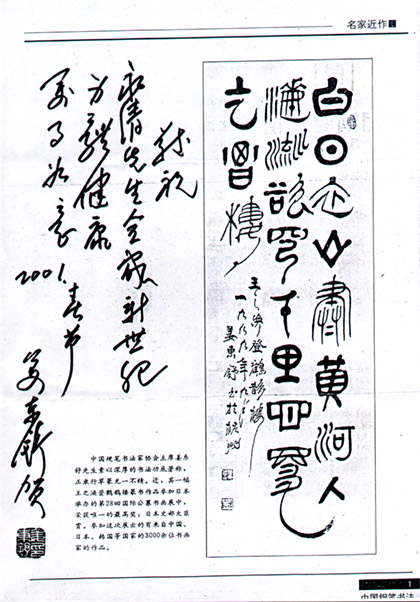 名家近作
白日依山盡黄河入
海流欲窮千里目更
上一層樓
王之涣登鹳鹊楼
一九九九年九月
姜東舒书于杭州
敬祝
永清先生全家新世纪
身體健康
万事如意
2001.春节
姜东舒贺
中国硬笔书法家协会主席姜东
舒先生素以深厚的书法功底著称，
正隶行草篆无一不精。近，其一幅
王之涣登鹳鹊楼篆书作品参加日本
举办的第28回国际公募书画展中，
荣获唯一的最高奖：日本文部大臣
赏。参加这次展出的有来自中国、
日本、韩国等国家的3000余位书画
家的作品。
1
中国钢笔书法